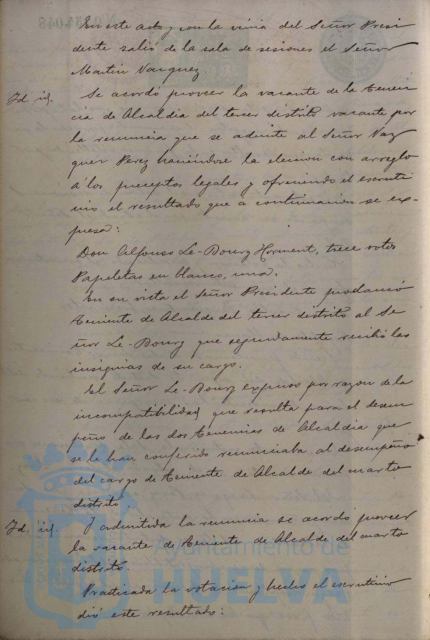 En este acto y con la venia del Señor Presi
dente salió de la sala de sesiones el Señor
Martin Vazquez
Id. id. Se acordó proveer la vacante de la Tenen
cia de Alcaldia del tercer distrito vacante por
la renuncia que se admite al Señor Vaz
quez Perez haciéndose la eleccion con arreglo
á los preceptos legales y ofreciendo el escruti
nio el resultado que a continuacion se ex-
presa:
Don Alfonso Le-Bourg Horment, trece votos
Papeletas en blanco, una.
En su vista el Señor Presidente proclamó
Teniente de Alcalde del tercer distrito al Se
ñor Le-Bourg que seguidamente recibió las
insignias de su cargo.
El Señor Le-Bourg expuso por razon de la
incompatibilidad que resulta para el desem
peño de las dos Tenencias de Alcaldia que
se le han conferido renunciaba al desempeño
del cargo de Teniente de Alcalde del cuarto
distrito.
Id. id. Y admitida la renuncia se acordó proveer
la vacante de Teniente de Alcalde del cuarto
distrito.
Practicada la votacion y hecho el escrutinio
dió este resultado:
Ayuntamiento de
HUELVA